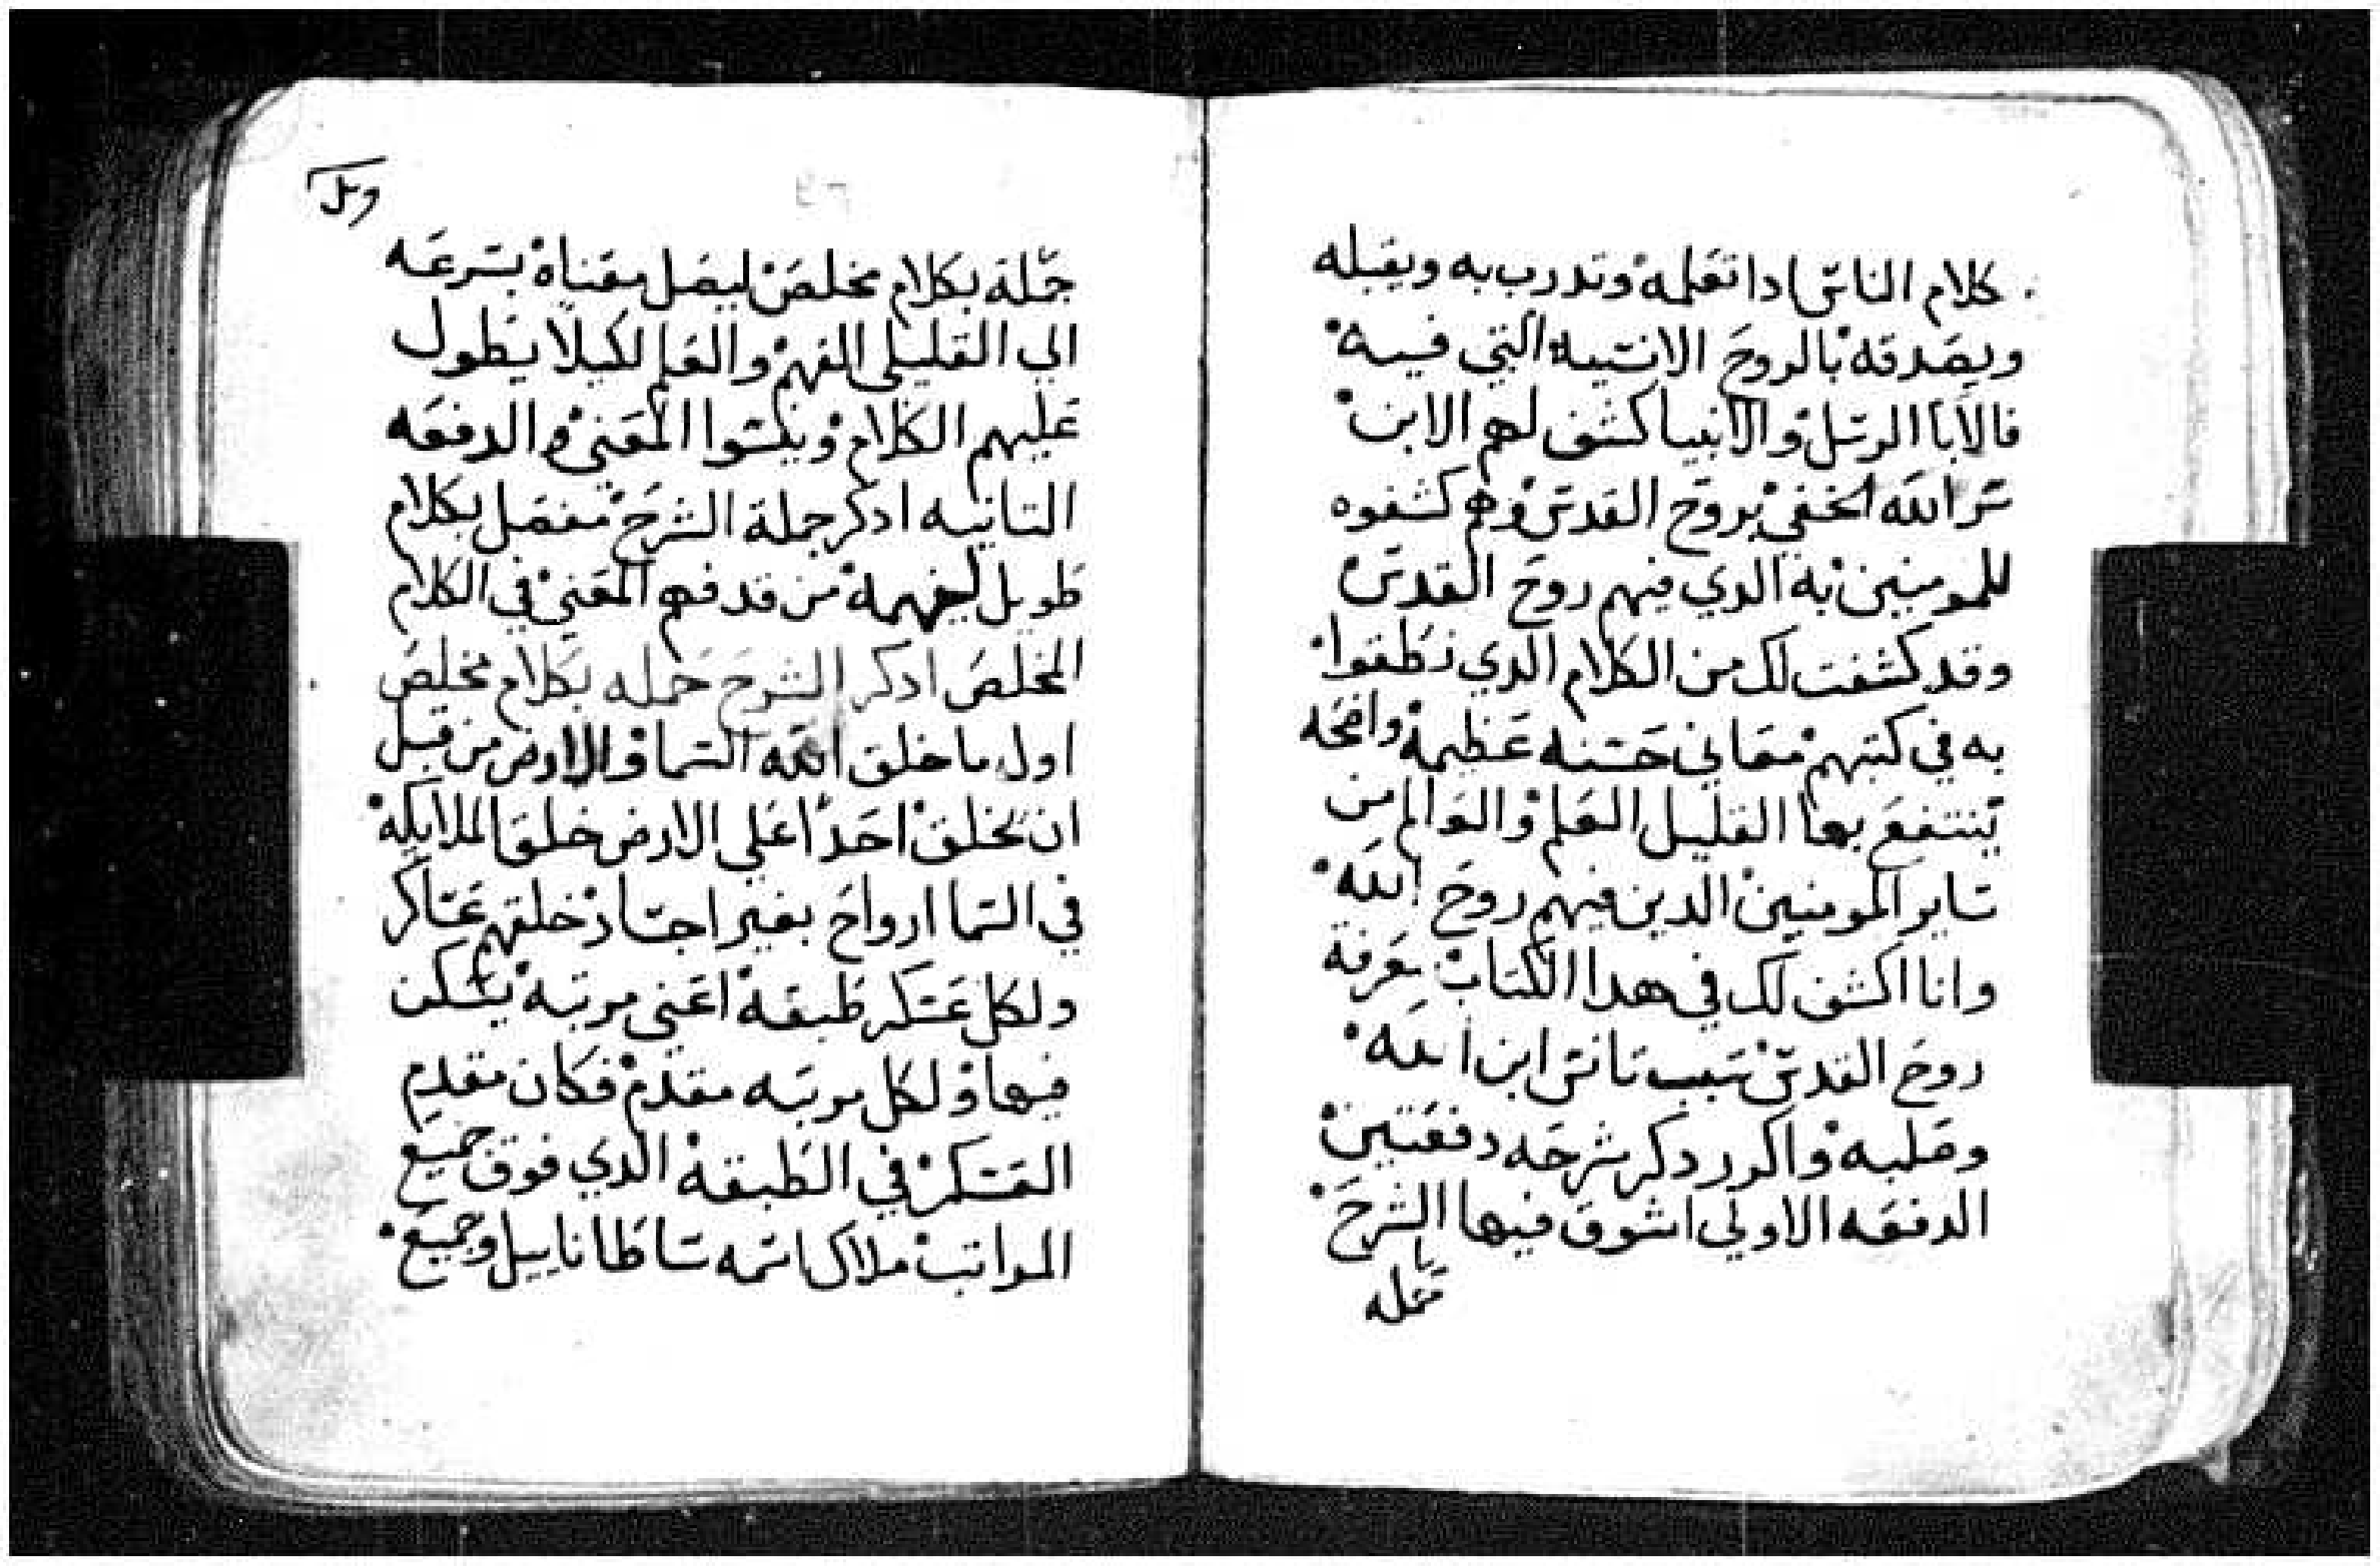 كلام الناس ادا تعلمه وتدرب به ويقبله
ويصدقه بالروح الانسيه التي فيه
فالابا الرسل والانبيا كشف لهم الابن
سر الله الخفي بروح القدس وهم كشفوه
للمومنين به الدي فيهم روح القدس
وقد كشفت لك من الكلام الدي نطقوا
به في كتبهم معاني حسنه عظيمه واضحه
ينتفع بها القليل العلم والعالم من
ساير المومنين الدين فيهم روح الله
وانا اكشف لك في هدا الكتاب بمعرفة
روح القدس سبب تانس ابن الله
وصلبه واكرر دكر شرحه دفعتين
الدفعه الاولي اشوق فيها الشرح
جمله
جمله بكلام مخلص ليصل معناه بسرعه
الي القليلي الفهم والعلم لكيلا يطول
عليهم الكلام وينسوا المعني والدفعه
التانيه ادكر جملة الشرح مفصل بكلام
طويل ليفهمه من قد فهم المعني في الكلام
المخلص ادكر الشرح جمله بكلام مخلص
اول ما خلق الله السما والارض من قبل
ان يخلق احدا علي الارض خلق الملايكه
في السما ارواح بغير اجساد خلقهم عساكر
ولكل عسكر طبقه اعني مرتبه يسكن
فيها ولكل مرتبه مقدم فكان مقدم
العسكر في الطبقه الدي فوق جميع
المراتب ملاك اسمه ساطاناييل وجميع